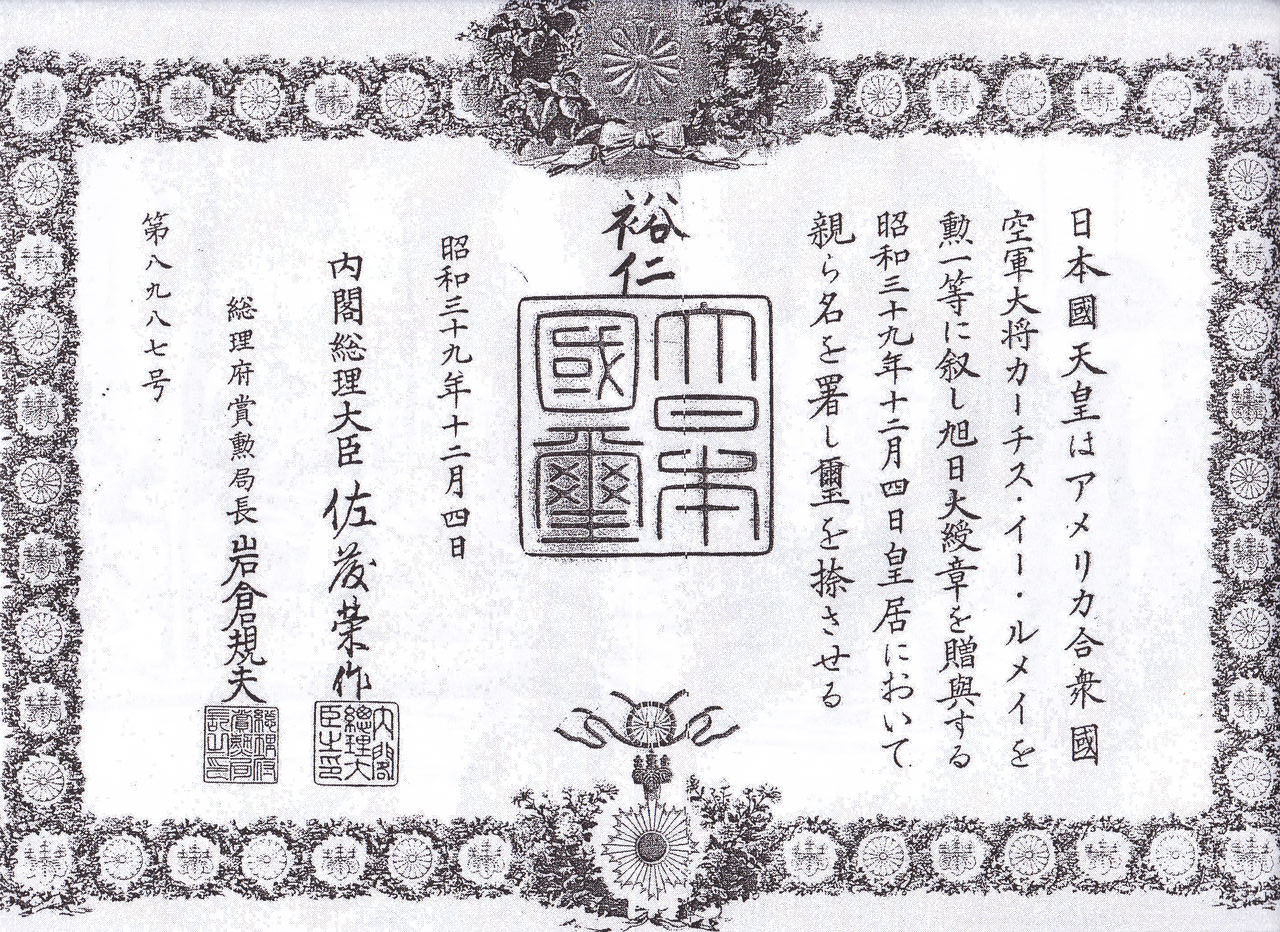 日本國天皇はアメリカ合衆國
空軍大将カーチス・イー・ルメイを
勲一等に叙し旭日大綬章を贈與する
昭和三十九年十二月四日皇居において
親ら名を署し璽を捺させる
裕仁
大日本
國璽
昭和三十九年十二月四日
内閣総理大臣 佐藤榮作
内閣
總理大
臣之印
総理府賞勲局長 岩倉規夫
第八九八七号